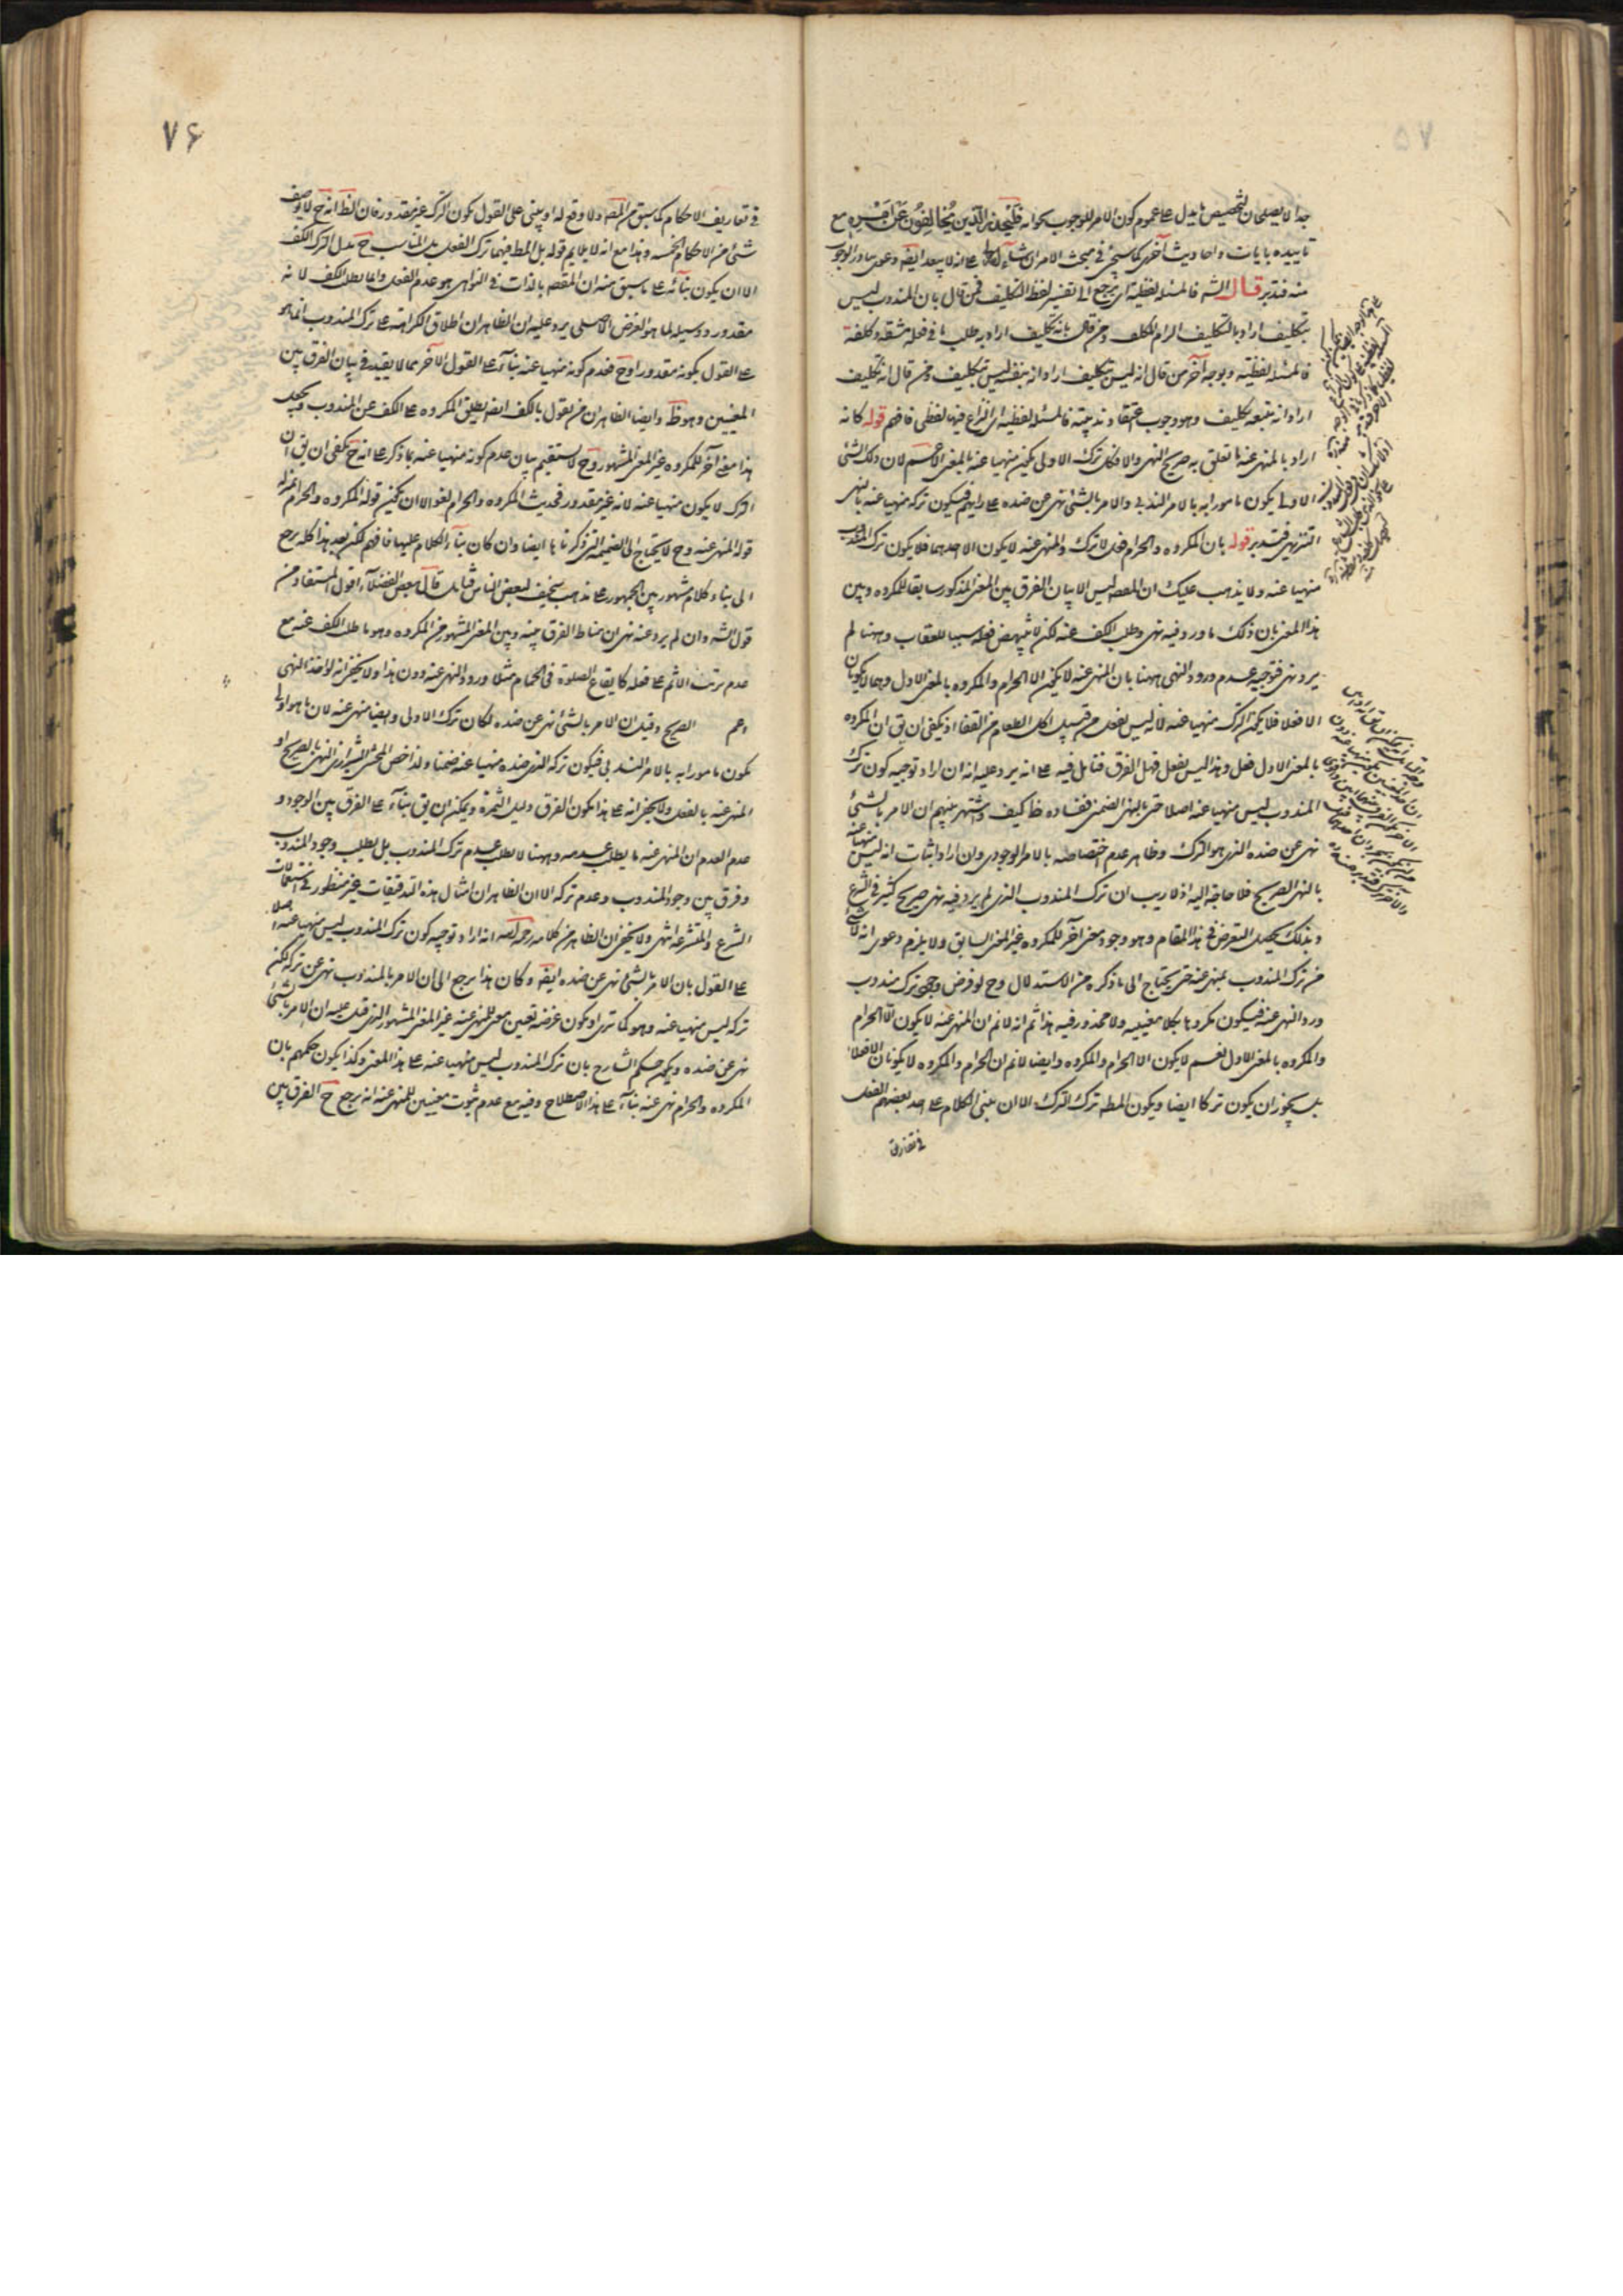 جدا لا يصلحان لتخصيص ما يدل على عموم كون الامر للوجوب كقوله فليحذر الذين يخالفون عن امره مع
تاييده بايات واحاديث اخرى كما سيجئ في مبحث الامر ان شاء الله على انه لا يبعد ايضه دعوى تبادر الوجوب
منه فتدبر قال الشه فالمسئلة لفظية اى يرجع الى تفسير لفظ التكليف فمن قال بان المندوب ليس
بتكليف اراد بالتكليف الزام المكلف ومن قال بانه تكليف اراد به طلب ما في فعله مشقة وكلفة
فالمسئلة لفظية وبوجه آخر من قال انه ليس بتكليف اراد انه بنفسه ليس بتكليف ومن قال انه تكليف
اراد انه يتبعه تكليف وهو وجوب اعتقاد ندبيته فالمسئلة لفظية اى النزاع فيها لفظى فافهم قوله كانه
اراد بالمنهى عنه ما تعلق به صريح النهى والا فكان ترك الاولى يكون منهيا عنه بالمعنى الاعم لان ذلك الشئ
الاولى يكون مامورا به بالامر الندبى والامر بالشئ نهى عن ضده على رايهم فيكون تركه منهيا عنه بالنهى
التنزيهى فتدبر قوله بان المكروه والحرام فعل لا ترك والمنهى عنه لا يكون الا احدهما فلا يكون ترك المندوب
منهيا عنه ولا يذهب عليك ان المقصه ليس الا بيان الفرق بين المعنى المذكور سابقا للمكروه وبين
هذا المعنى بان ذلك ما ورد فيه نهى وطلب الكف عنه لكن لا ينهض فعله سببا للعقاب وههنا لم
يرد نهى فتوجيه عدم ورود النهى ههنا بان المنهى عنه لا يكون الا الحرام والمكروه بالمعنى الاول وهما لا يكونان
الا فعلا فلا يكون الترك منهيا عنه لانه ليس بفعل من قبيل اكل الطعام من القفا اذ يكفى ان يق ان المكروه
بالمعنى الاول فعل وهذا ليس بفعل فهل الفرق فتامل فيه على انه يرد عليه انه ان اراد توجيه كون ترك
المندوب ليس منهيا عنه اصلا حتى بالنهى الضمنى ففساده ظ كيف واشتهر بينهم ان الامر بالشئ
نهى عن ضده الذى هو الترك وظاهر عدم اختصاصه بالامر الوجوبى وان اراد اثبات انه ليس منهيا عنه
بالنهى الصريح فلا حاجة اليه اذ لا ريب ان ترك المندوب الذى لم يرد فيه نهى صريح كثير في الشرع
وبذلك يحصل التعرض في هذا المقام وهو وجود معنى آخر للمكروه غير المعنى السابق ولا يلزم دعوى انه لا شئ
من ترك المندوب بمنهى عنه حتى يحتاج الى ما ذكره من الاستدلال وح لو فرض وجود ترك مندوب
ورد النهى عنه فيكون مكروها بكلا معنييه ولا محذور فيه هذا ثم انه لا نم ان المنهى عنه لا يكون الا الحرام
والمكروه بالمعنى الاول نعم لا يكون الا الحرام والمكروه وايضا لا نم ان الحرام والمكروه لا يكونان الا فعلا
بل يجوز ان يكون تركا ايضا ويكون المطه ترك الترك الا ان يبنى الكلام على اخذ بعضهم الفعل
في تعاريف
٧۶
في تعاريف الاحكام كما سبق من المصه ولا وقع له او يبنى على القول بكون الترك غير مقدور فان الظ انه ح لا يوصف
شئ من الاحكام الخمسة وهذا مع انه لا يلايم قوله بل المطه فيهما ترك الفعل بل المناسب ح بدل الترك الكف
الا ان يكون بنائه على ما سبق منه ان المقصه بالذات في النواهى هو عدم الفعل وانما يطلب الكف لانه
مقدور ووسيلة لما هو الغرض الاصلى يرد عليه ان الظاهر ان اطلاق الكراهة على ترك المندوب انما هو
على القول بكونه مقدورا وح فعدم كونه منهيا عنه بناء على القول الاخر مما لا يفيد في بيان الفرق بين
المعنيين وهو ظ وايضا الظاهر ان من يقول بالكف ايضا يطلق المكروه على الكف عن المندوب ويجعل
هذا معنى آخر للمكروه غير المعنى المشهور وح لا يستقيم بيان عدم كونه منهيا عنه بما ذكر على انه ح يكفى ان يق ان
الترك لا يكون منهيا عنه لانه غير مقدور فحديث المكروه والحرام لغو الا ان يكون قوله المكروه والحرام بمنزلة
قوله المنهى عنه وح لا يحتاج الى الضميمة التى ذكرناها ايضا وان كان بناء الكلام عليها فافهم لكن بعد هذا كله يرجع
الى بناء كلام مشهور بين الجمهور على مذهب سخيف لبعض الناس فتامل قال بعض الفضلاء اقول المستفاد من
قول الشه وان لم يرد عنه نهى ان مناط الفرق بينه وبين المعنى المشهور من المكروه وهو ما طلب الكف عنه مع
عدم ترتب الاثم على فعله كايقاع الصلوة في الحمام مثلا ورود النهى عنه دون هذا ولا يخفى انه لو اخذ النهى
اعم الصريح وقيل ان الامر بالشئ نهى عن ضده لكان ترك الاولى ايضا منهى عنه لان ما هو اولى
يكون مامورا به بالامر الندبى فيكون تركه الذى ضده منهيا عنه ضمنا ولذا خص المحشى الشيرازى النهى بالصريح او
المنهى عنه بالفعل ولا يخفى انه على هذا يكون الفرق قليل الثمرة ويمكن ان يق بناء على الفرق بين الوجود و
عدم العدم ان المنهى عنه ما يطلب عدمه وههنا لا يطلب عدم ترك المندوب بل يطلب وجود المندوب
وفرق بين وجود المندوب وعدم تركه الا ان الظاهر ان امثال هذه التدقيقات غير منظور في استعمالات
الشرع والمتشرعة انتهى ولا يخفى ان الظاهر من كلامه رحمه الله انه اراد توجيه كون ترك المندوب ليس منهيا عنه اصلا
على القول بان الامر بالشئ نهى عن ضده ايضه وكان هذا يرجع الى ان الامر بالمندوب نهى عن تركه لكن
تركه ليس منهيا عنه وهو كما ترى او يكون غرضه تعيين معنى للمنهى عنه غير المعنى المشهور الذى قيل عليه ان الامر بالشئ
نهى عن ضده ويكون حكم الشارح بان ترك المندوب ليس منهيا عنه على هذا المعنى وكذا يكون حكمهم بان
المكروه والحرام نهى عنه بناء على هذا الاصطلاح وفيه مع عدم ثبوت معنيين للمنهى عنه انه يرجع ح الفرق بين